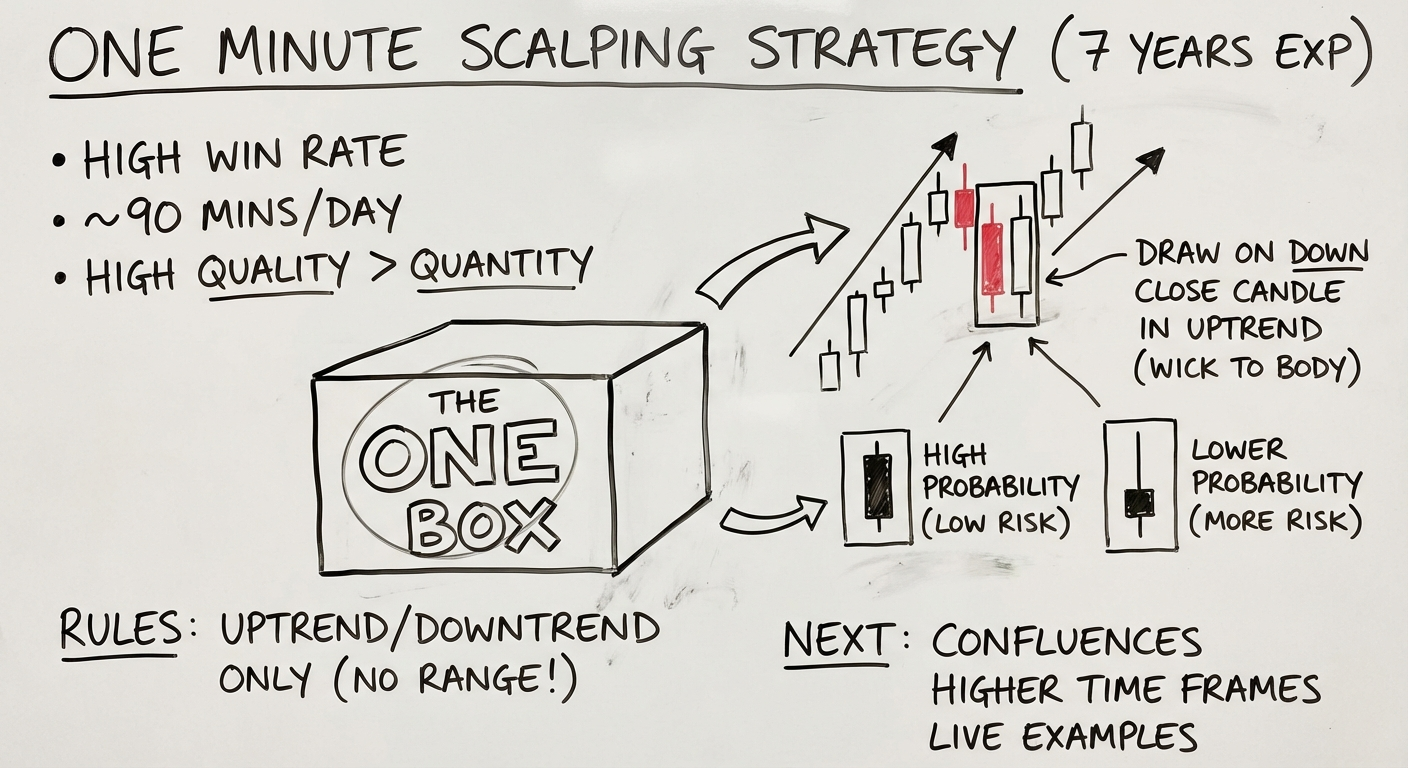 ONE MINUTE SCALPING STRATEGY (7 YEARS EXP)
• HIGH WIN RATE
• ~90 MINS/DAY
• HIGH QUALITY > QUANTITY
THE
ONE
BOX
DRAW ON DOWN
CLOSE CANDLE
IN UPTREND
(WICK TO BODY)
HIGH
PROBABILITY
(LOW RISK)
LOWER
PROBABILITY
(MORE RISK)
RULES: UPTREND/DOWNTREND
ONLY (NO RANGE!)
NEXT: CONFLUENCES
HIGHER TIME FRAMES
LIVE EXAMPLES